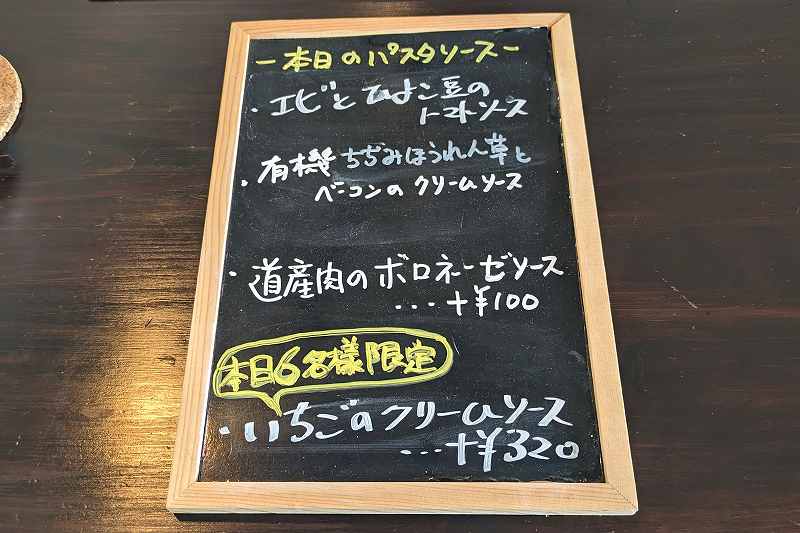 -本日のパスタソース-
・エビとひよこ豆の
トマトソース
・有機ちぢみほうれん草と
ベーコンのクリームソース
・道産肉のボロネーゼソース
...+¥100
本日6名様限定
・いちごのクリームソース
...+¥320